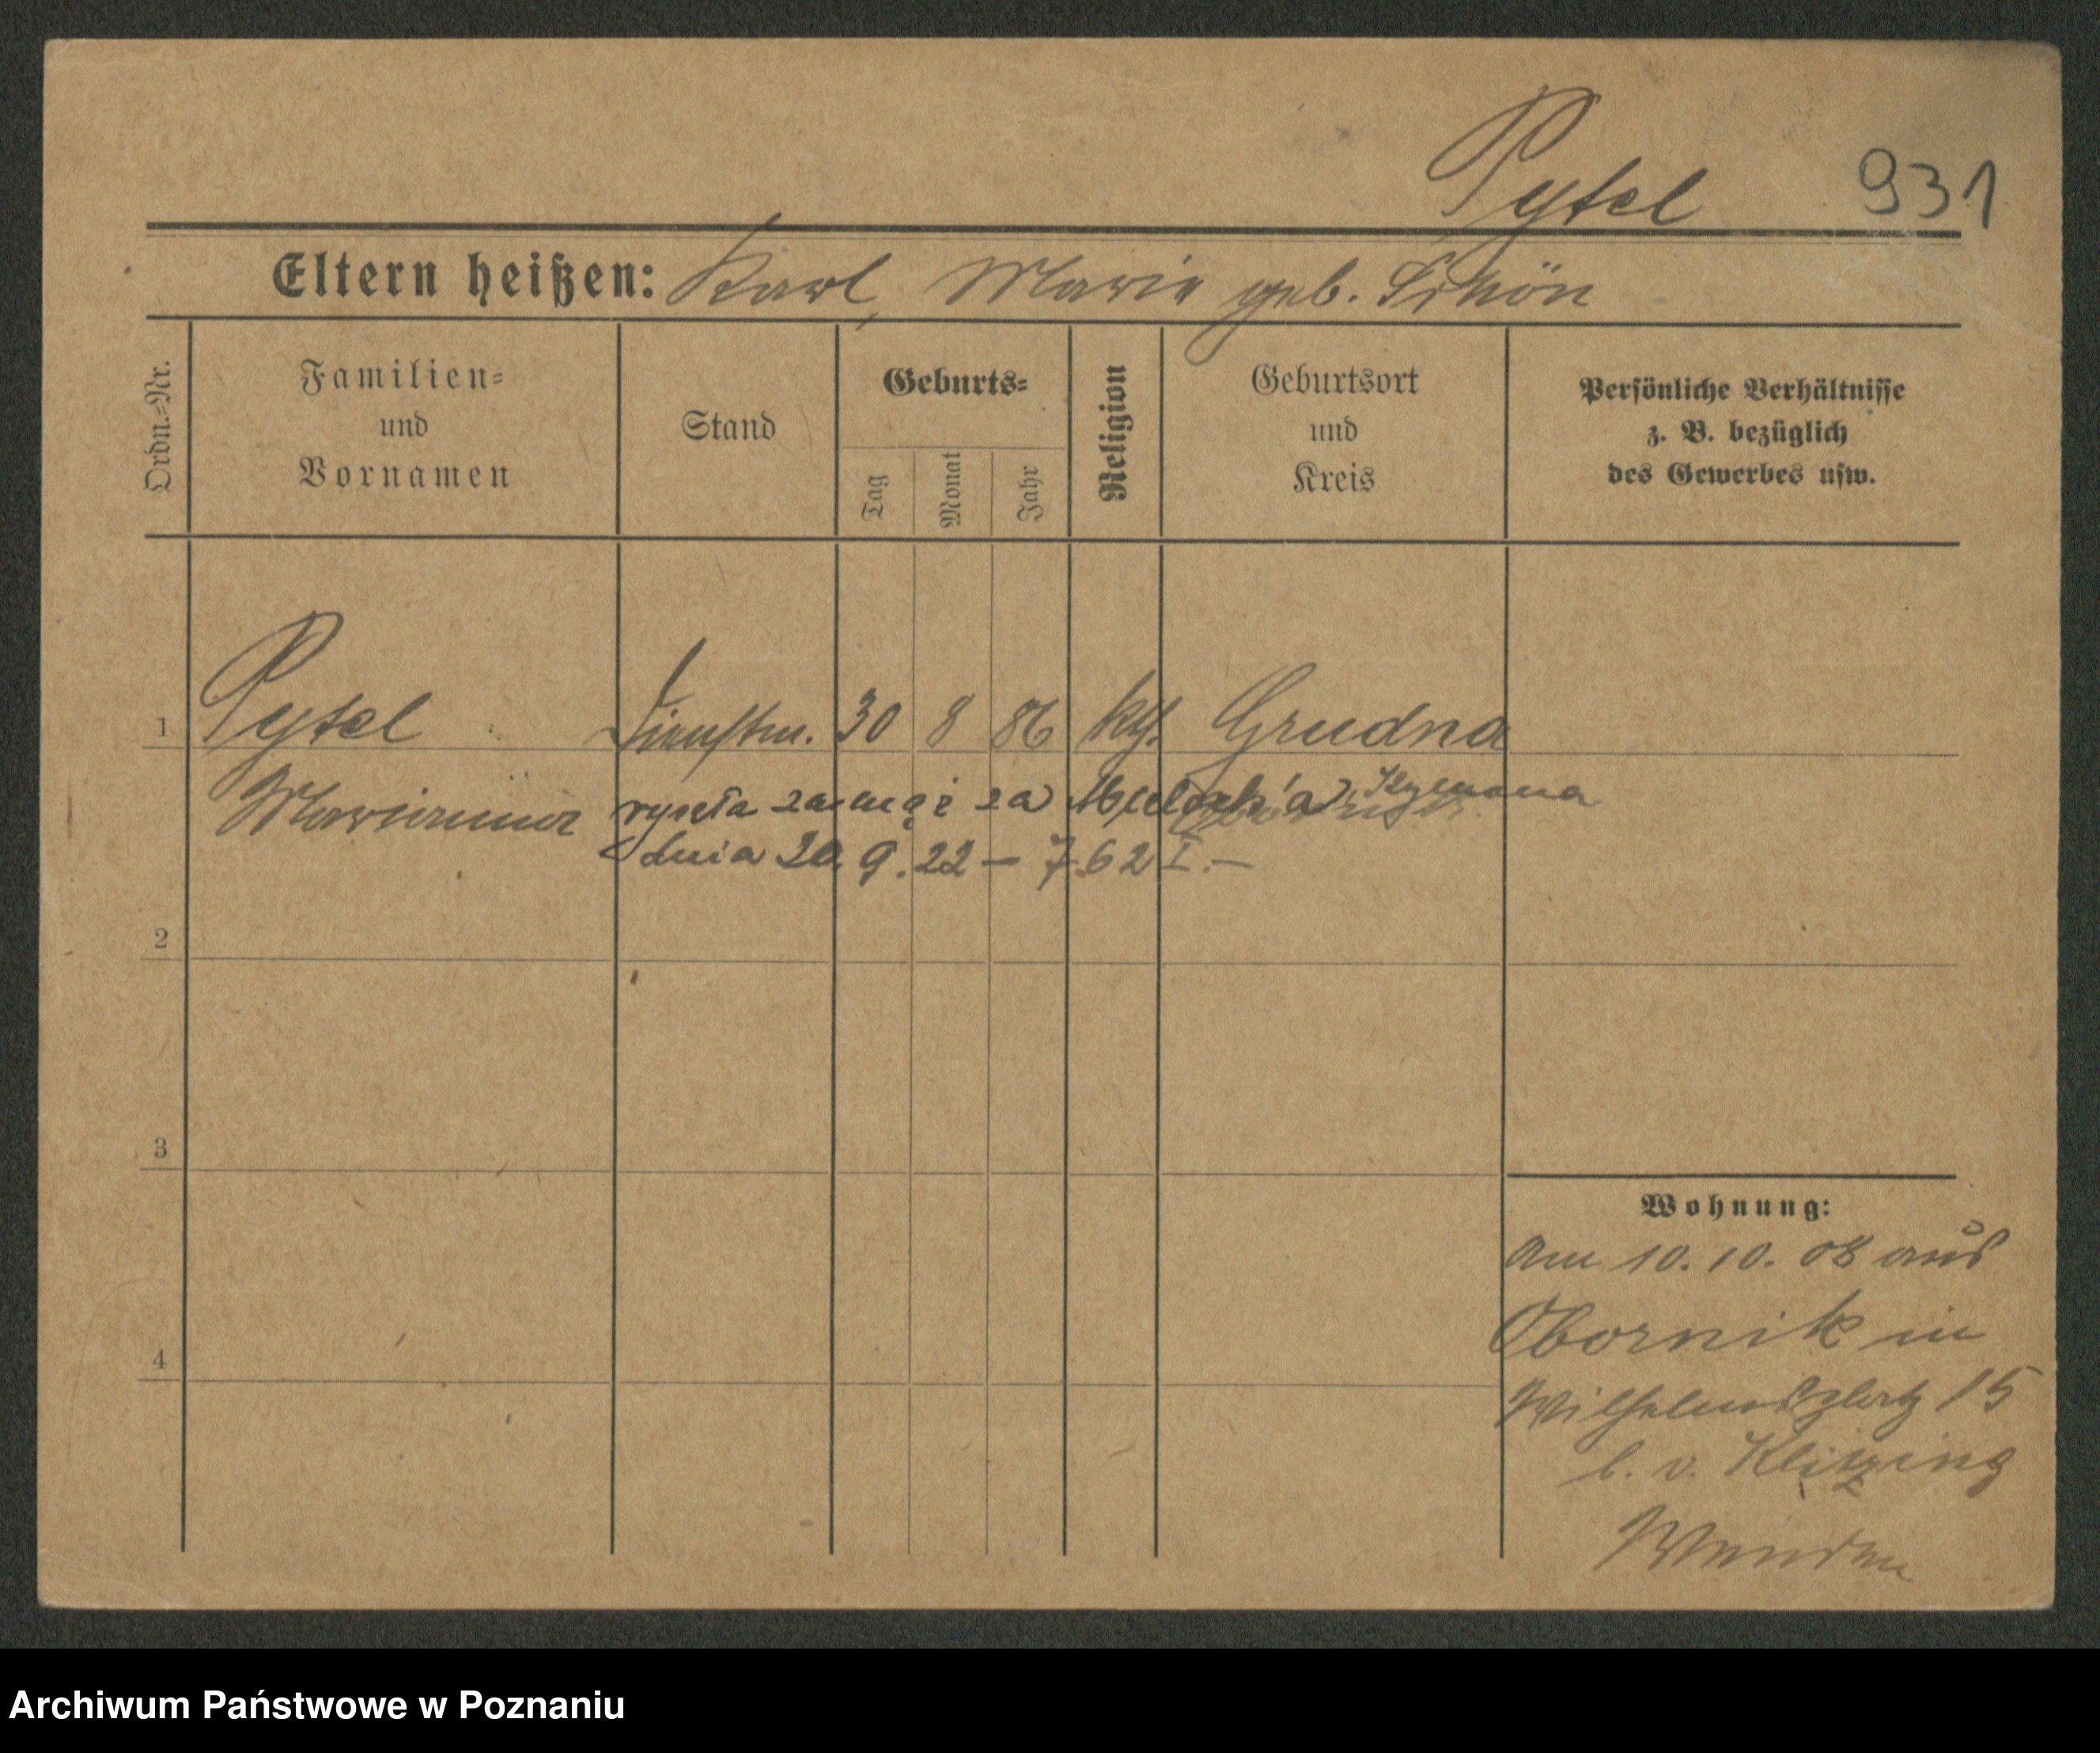 Pytel 931
Eltern heißen: Karl, Marie geb. Schön
Ordn.-Nr.
Familien-
und
Vornamen
Stand
Geburts-
Tag
Monat
Jahr
Religion
Geburtsort
und
Kreis
Persönliche Verhältnisse
z. B. bezüglich
des Gewerbes usw.
1 Pytel Dienstm. 30 8 86 kth. Grudna
Marianna
za mąż za
dnia 20.9.22 – 762 I. –
2
3
4
Wohnung:
am 10.10.08 aus
Obornik in
Wilhelmsplatz 15
b. v. Klitzing
Archiwum Państwowe w Poznaniu